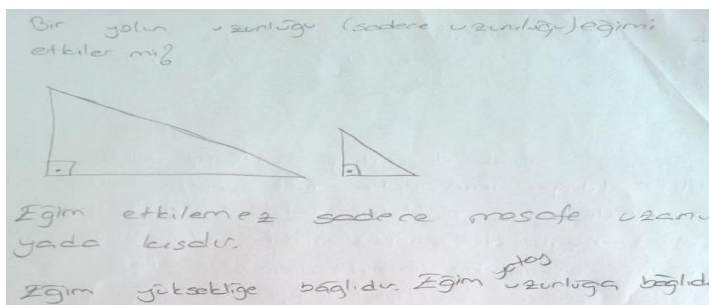 Bir yolun uzunluğu (sadece uzunluğu) eğimi
etkiler mi?
Eğim etkilemez sadece mesafe uzanır
yada kısalır.
Eğim yüksekliğe bağlıdır. Eğim yatay uzunluğa bağlıd